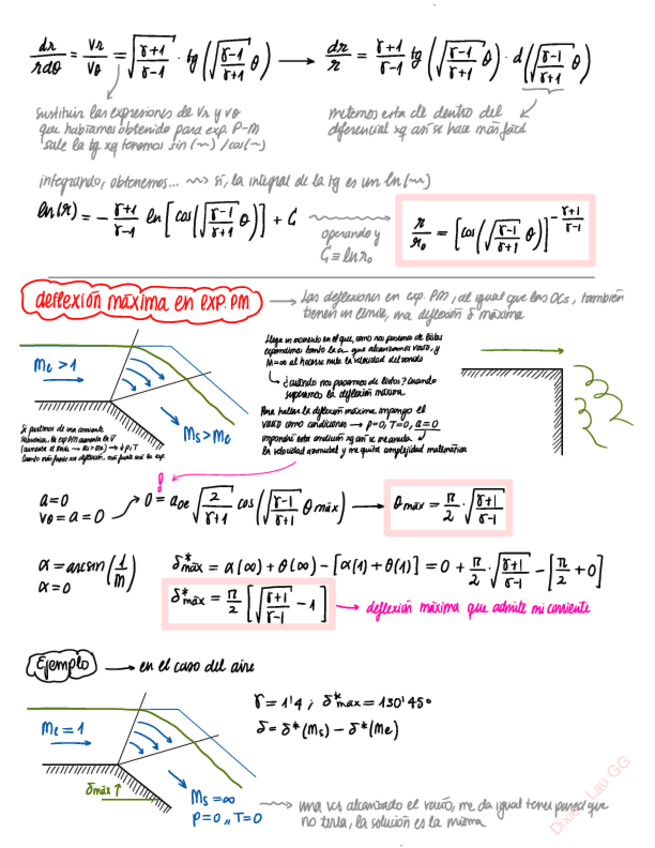 dr/rdθ = vr/vθ = √(γ+1/γ-1) · tg(√(γ-1/γ+1) θ) → dr/r = γ+1/γ-1 tg(√(γ-1/γ+1) θ) · d(√(γ-1/γ+1) θ)
sustituir las expresiones de vr y vθ
que habíamos obtenido para exp. P-M
sale la tg xq tenemos sin(~)/cos(~)
metemos esta de dentro del
diferencial xq así se hace más fácil
integrando, obtenemos... ~> sí, la integral de la tg es un ln(~)
ln(r) = - γ+1/γ-1 ln[cos(√(γ-1/γ+1) θ)] + C
operando y
C ≡ ln r₀
r/r₀ = [cos(√(γ-1/γ+1) θ)]^(-γ+1/γ-1)
deflexión máxima en exp. PM
→ Las deflexiones en exp. PM, al igual que las OCs, también
tienen un límite, una deflexión δ máxima
Me > 1
Ms > Me
Si partimos de una corriente
Llega un momento en el que, como nos pasemos de listos
expandimos tanto la a que alcanzamos vacío, y
M=∞ al hacerse nula la velocidad del sonido
→ ¿cuándo nos pasamos de listos? Cuando
superamos la deflexión máxima
Para hallar la deflexión máxima impongo el
vacío como condiciones → p=0, T=0, a=0
impondré esta condición xq así se me anula
la velocidad azimutal y me quita complejidad matemática
!
a=0
vθ = a = 0
0 = a₀e √(2/γ+1) cos(√(γ-1/γ+1) θmáx) → θmáx = π/2 · √(γ+1/γ-1)
α = arcsin(1/M)
α = 0
δ*máx = α(∞) + θ(∞) - [α(1) + θ(1)] = 0 + π/2 · √(γ+1/γ-1) - [π/2 + 0]
δ*máx = π/2 [√(γ+1/γ-1) - 1] → deflexión máxima que admite mi corriente
Ejemplo → en el caso del aire
γ = 1'4 ; δ*máx = 130'45º
δ = δ*(Ms) - δ*(Me)
Me = 1
δmáx ↑
Ms = ∞
P=0 ,, T=0
una vez alcanzado el vacío, me da igual tener pared que
no terla, la solución es la misma
Lau GG